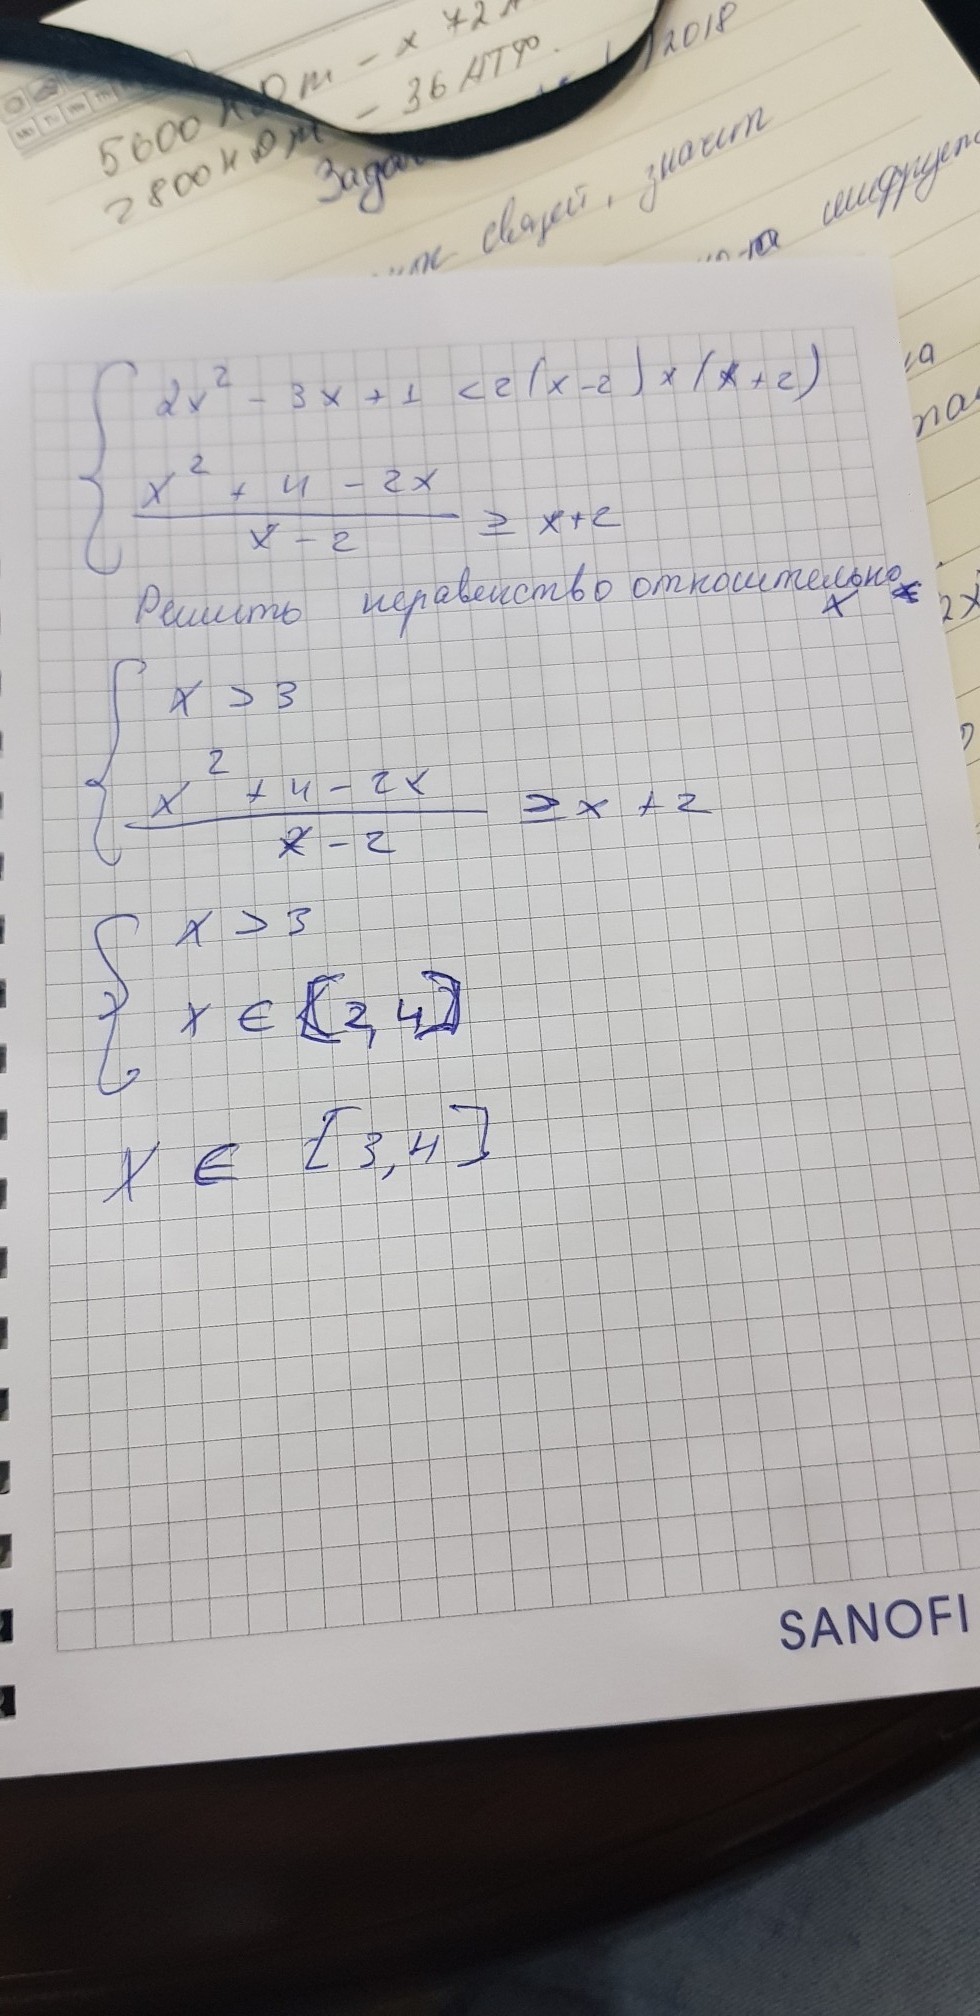 5600 кDm - x 72 A
2800 кDm - 36 АТФ.
2018
Задач
связей, значит
шифрует
2x² - 3x + 1 < 2(x-2) x (x+2)
x² + 4 - 2x
x - 2
≥ x+2
Решить неравенство относительно
x
x > 3
x² + 4 - 2x
x - 2
≥ x + 2
x > 3
x ∈ [2, 4]
x ∈ [3, 4]
SANOFI